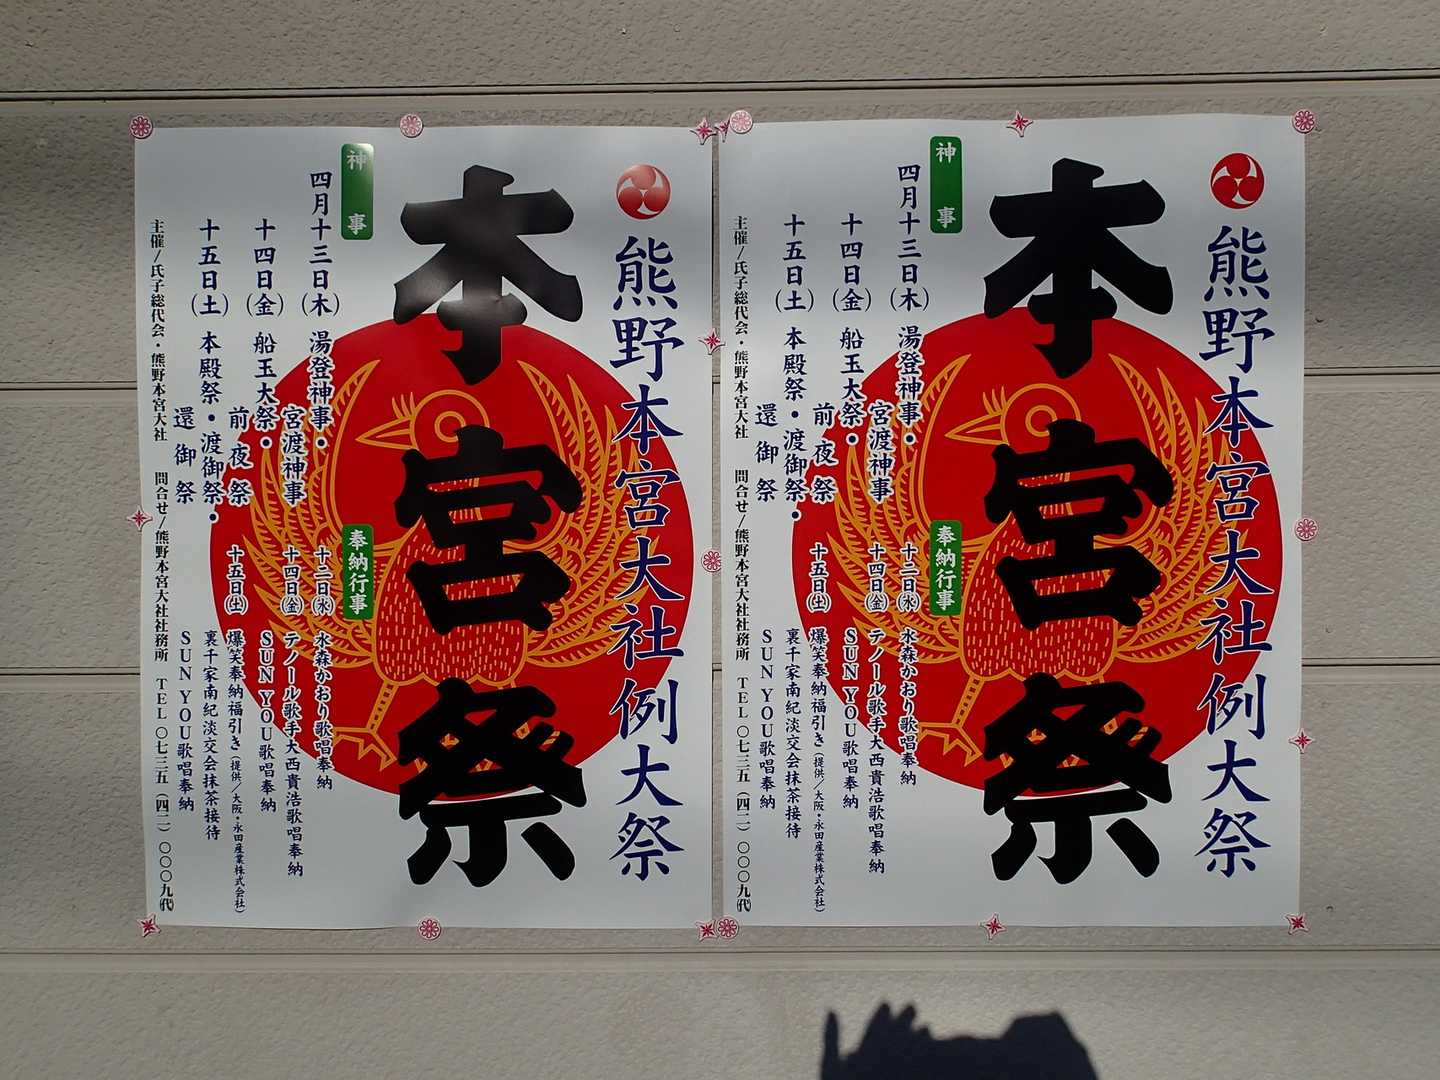 熊野本宮大社例大祭
本宮祭
神事
四月十三日(木) 湯登神事・宮渡神事
十四日(金) 船玉大祭・前夜祭
十五日(土) 本殿祭・渡御祭・還御祭
奉納行事
十二日(水) 水森かおり歌唱奉納
十四日(金) テノール歌手大西貴浩歌唱奉納
SUN YOU歌唱奉納
十五日(土) 爆笑奉納福引き(提供/大阪・永田産業株式会社)
裏千家南紀淡交会抹茶接待
SUN YOU歌唱奉納
主催/氏子総代会・熊野本宮大社 問合せ/熊野本宮大社社務所 TEL〇七三五(四二)〇〇〇九(代)
熊野本宮大社例大祭
本宮祭
神事
四月十三日(木) 湯登神事・宮渡神事
十四日(金) 船玉大祭・前夜祭
十五日(土) 本殿祭・渡御祭・還御祭
奉納行事
十二日(水) 水森かおり歌唱奉納
十四日(金) テノール歌手大西貴浩歌唱奉納
SUN YOU歌唱奉納
十五日(土) 爆笑奉納福引き(提供/大阪・永田産業株式会社)
裏千家南紀淡交会抹茶接待
SUN YOU歌唱奉納
主催/氏子総代会・熊野本宮大社 問合せ/熊野本宮大社社務所 TEL〇七三五(四二)〇〇〇九(代)